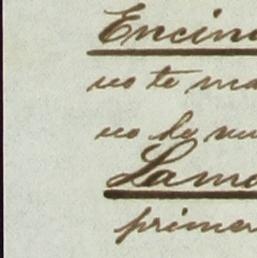 Encin
no te ma
no le mu
Lama
primer